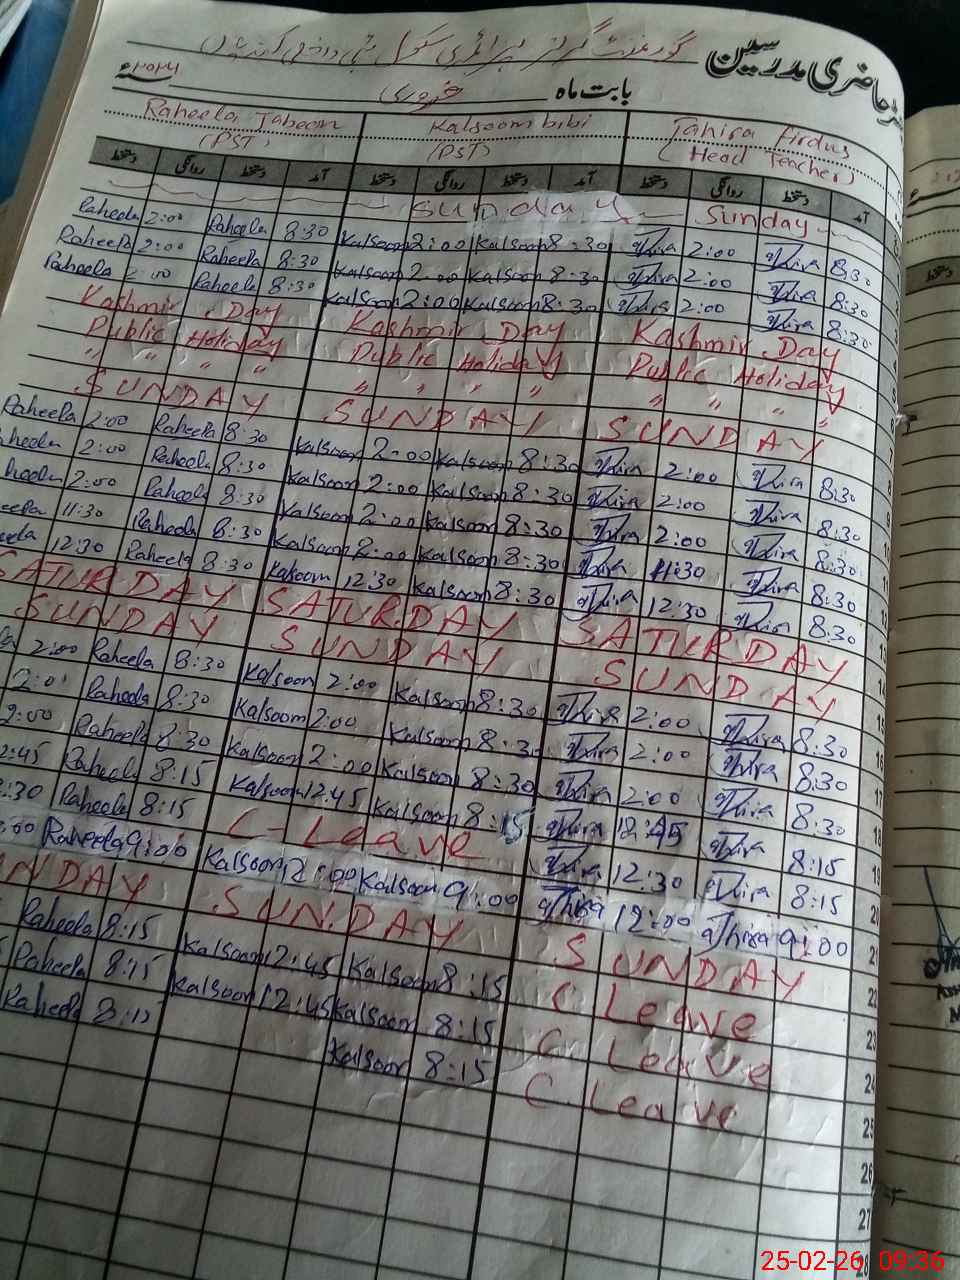 حاضری مدرسین گورنمنٹ گرلز پرائمری سکول
بابت ماہ فروری
Raheela Tabeem Kalsoom bibi Tahira Firdus
(PST) (PST) (Head Teacher)
آمد دستخط روانگی دستخط آمد دستخط روانگی دستخط آمد دستخط روانگی دستخط
Sunday Sunday
Raheela 2:00 Raheela 8:30 Kalsoom 2:00 Kalsoom 8:30 Thira 2:00 Thira 8:30
Raheela 2:00 Raheela 8:30 Kalsoom 2:00 Kalsoom 8:30 Thira 2:00 Thira 8:30
Raheela 2:00 Raheela 8:30 Kalsoom 2:00 Kalsoom 8:30 Thira 2:00 Thira 8:30
Kashmir Day Kashmir Day Kashmir Day
Public Holiday Public Holiday Public Holiday
" " " " " " " " " " " "
SUNDAY SUNDAY SUNDAY
Raheela 2:00 Raheela 8:30 Kalsoom 2:00 Kalsoom 8:30 Thira 2:00 Thira 8:30 8
Raheela 2:00 Raheela 8:30 Kalsoom 2:00 Kalsoom 8:30 Thira 2:00 Thira 8:30 9
heela 2:00 Raheela 8:30 Kalsoom 2:00 Kalsoom 8:30 Thira 2:00 Thira 8:30 10
eela 11:30 Raheela 8:30 Kalsoom 2:00 Kalsoom 8:30 Thira 11:30 Thira 8:30
eela 12:30 Raheela 8:30 Kalsoom 12:30 Kalsoom 8:30 Thira 12:30 Thira 8:30 12
SATURDAY SATURDAY SATURDAY 13
SUNDAY SUNDAY SUNDAY 14
2:00 Raheela 8:30 Kalsoom 2:00 Kalsoom 8:30 Thira 2:00 Thira 8:30 15
2:0 Raheela 8:30 Kalsoom 2:00 Kalsoom 8:30 Thira 2:00 Thira 8:30 16
2:00 Raheela 8:30 Kalsoom 2:00 Kalsoom 8:30 Thira 2:00 Thira 8:30 17
2:45 Raheela 8:15 Kalsoom 12:45 Kalsoom 8:15 Thira 12:45 Thira 8:15 18
:30 Raheela 8:15 C-Leave Thira 12:30 Thira 8:15 19
:00 Raheela 9:00 Kalsoom 12:00 Kalsoom 9:00 Thira 12:00 Thira 9:00 20
NDAY SUNDAY SUNDAY 21
Raheela 8:15 Kalsoom 12:45 Kalsoom 8:15 C Leave 22
Raheela 8:15 Kalsoom 12:45 Kalsoom 8:15 C Leave 23
Raheela 8:15 Kalsoom 8:15 C Leave 24
25
26
27
28
25-02-26 09:36